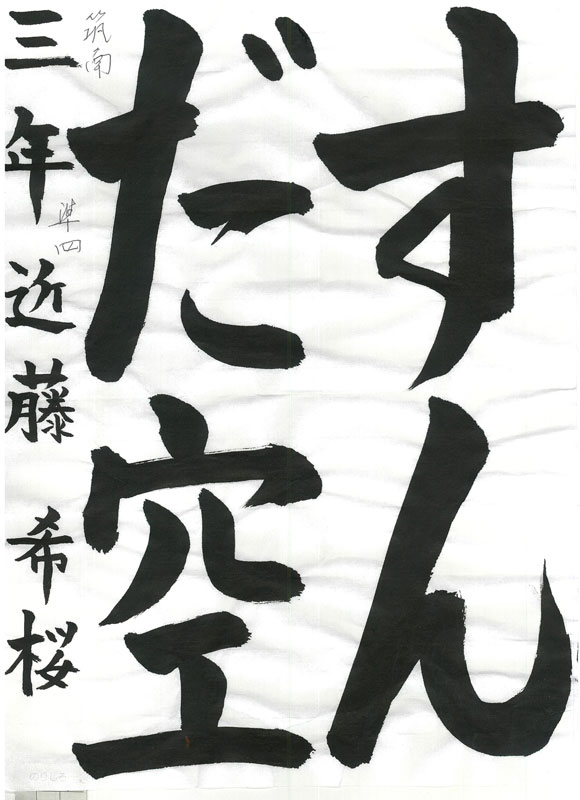 すん
だ空
三年近藤希桜
筑南
準四